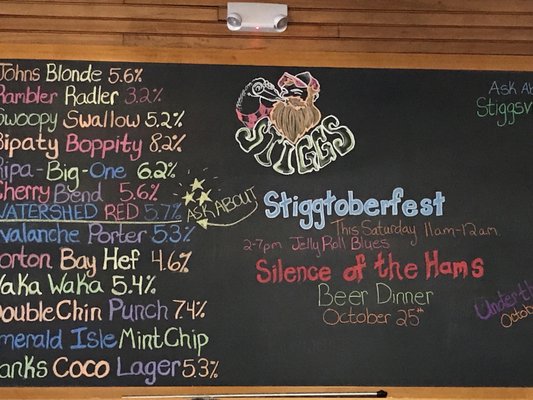 Johns Blonde 5.6%
Rambler Radler 3.2%
Swoopy Swallow 5.2%
Bipaty Boppity 8.2%
Ripa-Big-One 6.2%
Cherry Bend 5.6%
WATERSHED RED 5.7%
Avalanche Porter 5.3%
orton Bay Hef 4.6%
Waka Waka 5.4%
DoubleChin Punch 7.4%
Emerald Isle MintChip
anks Coco Lager 5.3%
STIGGS
ASK ABOUT
Stiggtoberfest
This Saturday 11am-12am
2-7pm Jelly Roll Blues
Silence of the Hams
Beer Dinner
October 25th
Ask Ab
Stiggsv
Under th
Octob